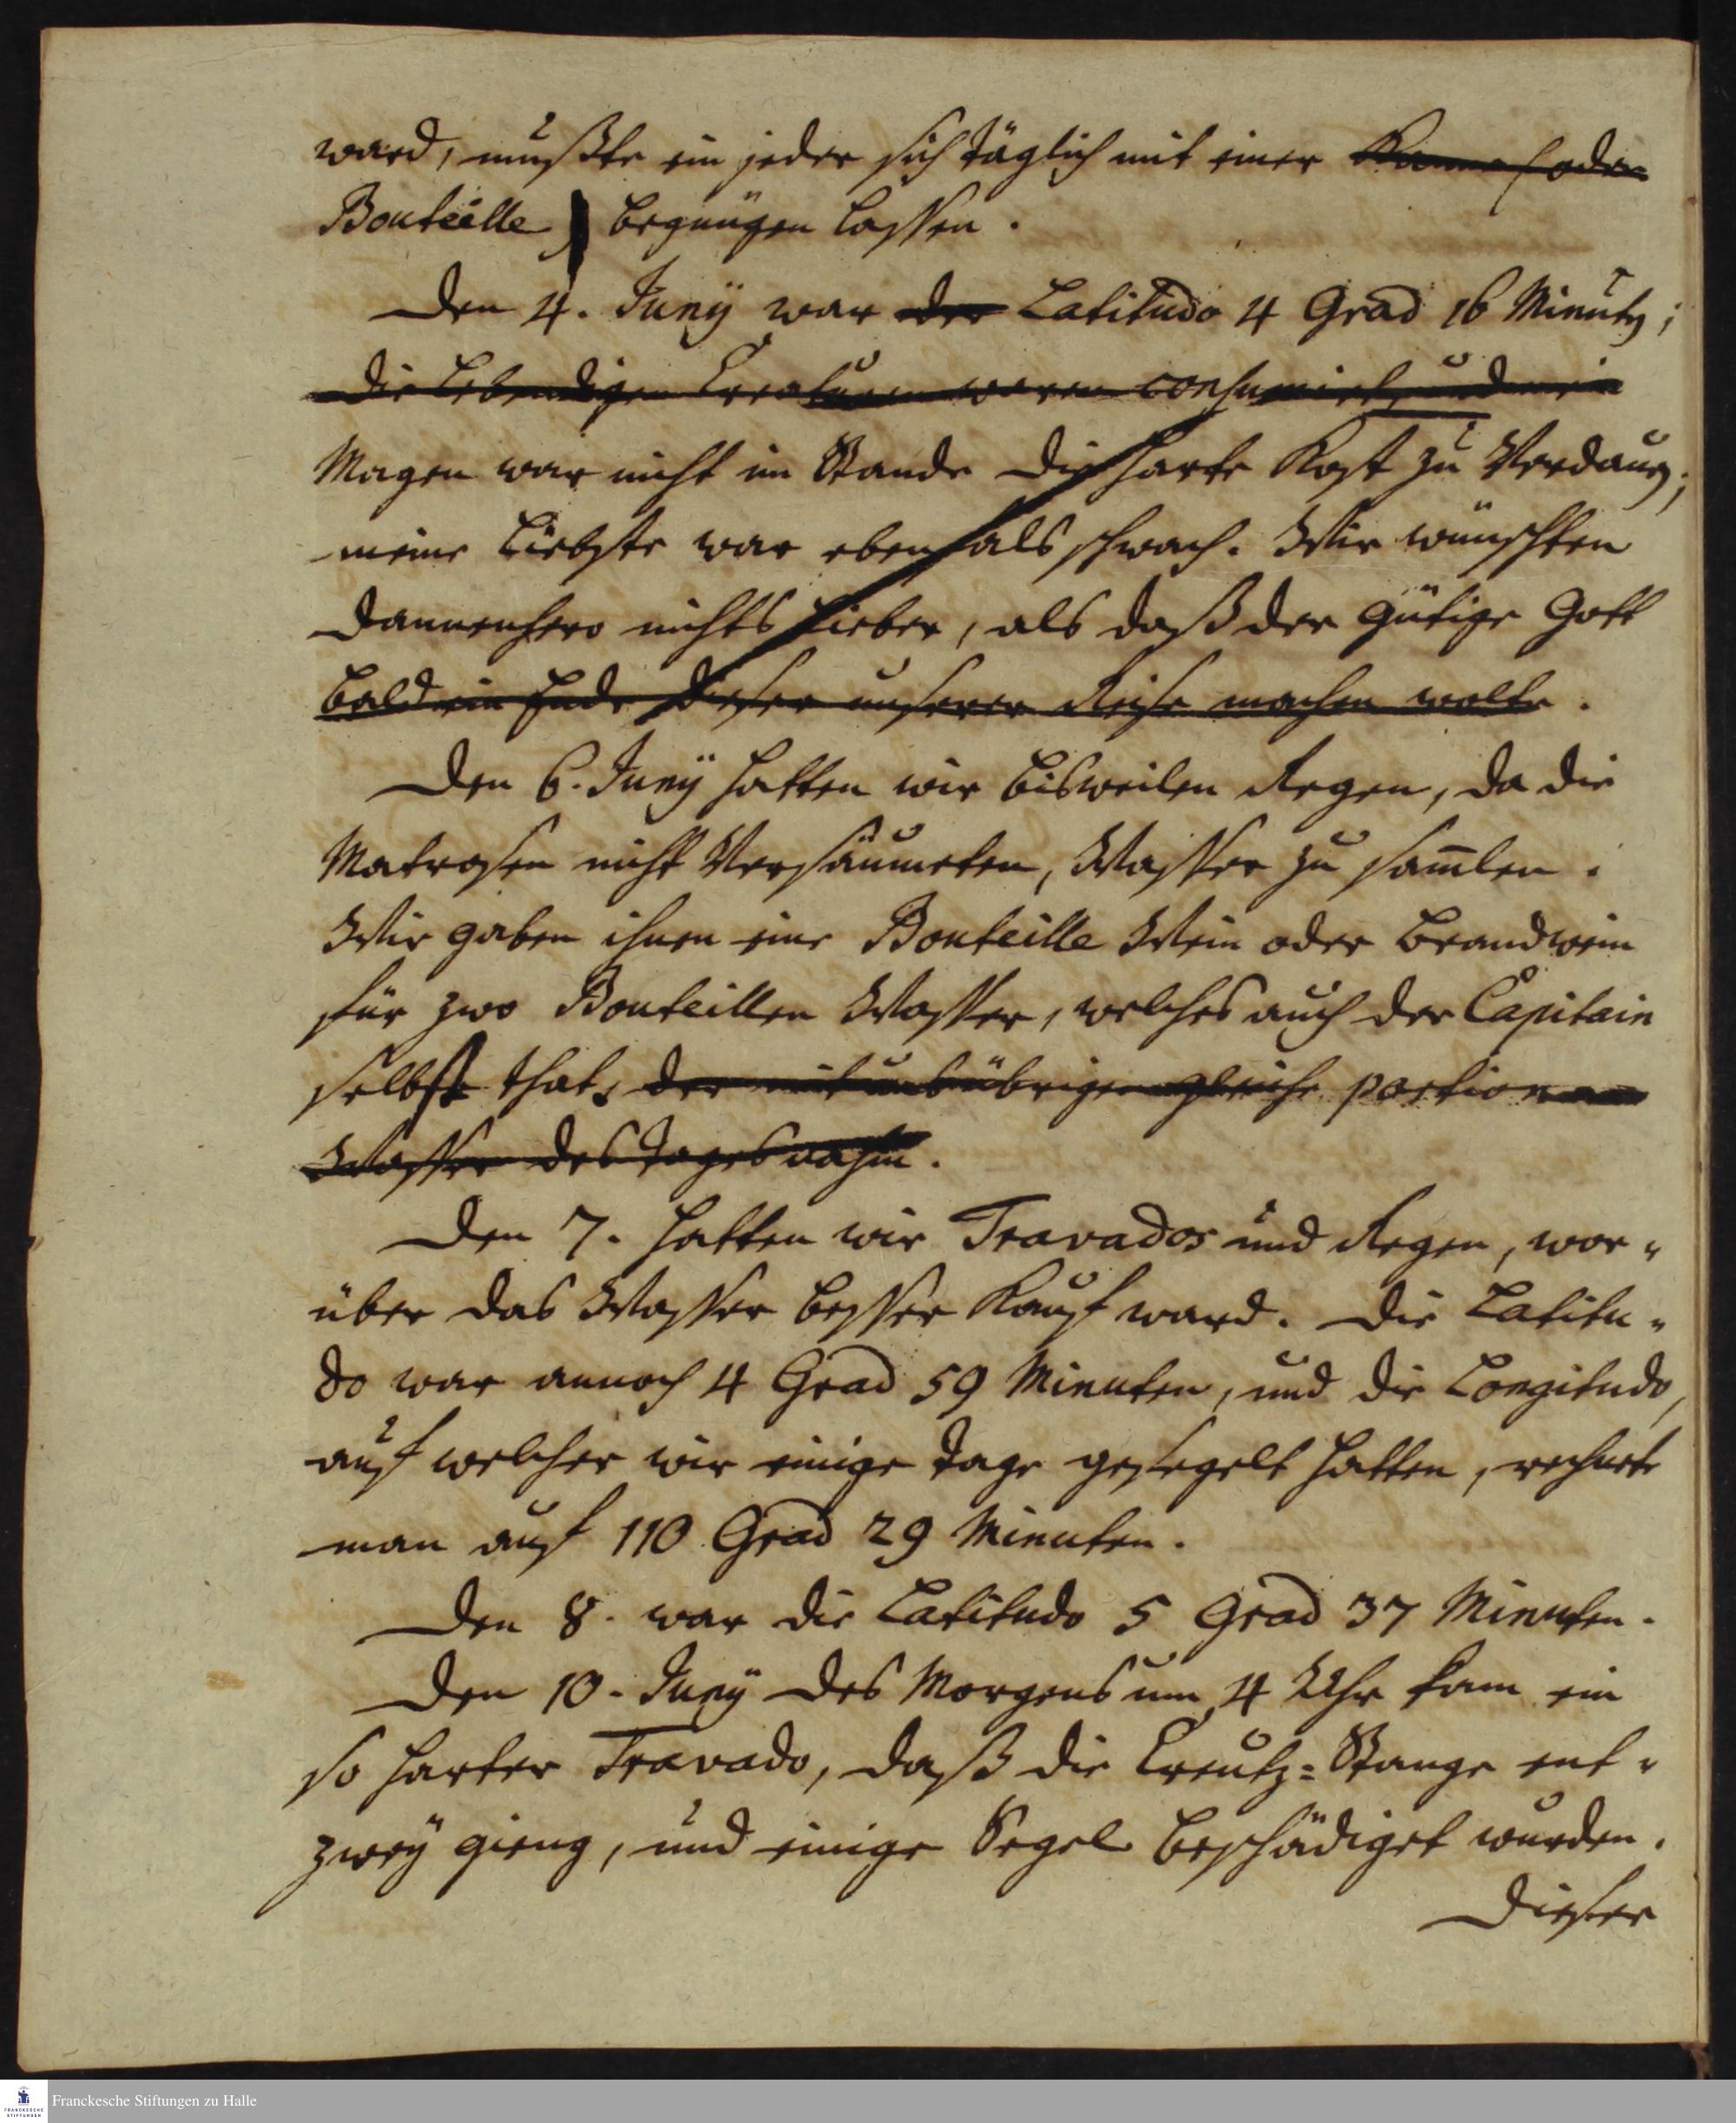 ward, mußte ein jeder sich täglich mit einer Kanne (oder
Bouteille) begnügen lassen.
Den 4. Juny war der Latitudo 4 Grad 16 Minuten;
die lebendigen Creaturen waren consumiret, und mein
Magen war nicht im Stande die harte Kost zu verdauen;
meine Liebste war ebenfals schwach. Wir wünschten
dannenhero nichts lieber, als daß der gütige Gott
bald ein Ende dieser unserer Reise machen wolte.
Den 6. Juny hatten wir bisweilen Regen, da die
Matrosen nicht versäumeten, Wasser zu sam̅len.
Wir gaben ihnen eine Bouteille Wein oder Brandwein
für zwo Bouteillen Wasser, welches auch der Capitain
selbst that, der mit uns übrigen gleiche portion an
Wasser des Tages nahm.
Den 7. hatten wir Travados und Regen, wor-
über das Wasser besser Kauf ward. Die Latitu-
do war annoch 4 Grad 59 Minuten, und die Longitudo,
auf welcher wir einige Tage gesegelt hatten, rechnete
man auf 110 Grad 29 Minuten.
Den 8. war die Latitudo 5 Grad 37 Minuten.
Den 10. Juny des Morgens um 4 Uhr kam ein
so harter Travado, daß die Creutz-Stange ent-
zwey gieng, und einige Segel beschädiget wurden.
Dieser
Franckesche Stiftungen zu Halle
FRANCKESCHE
STIFTUNGEN